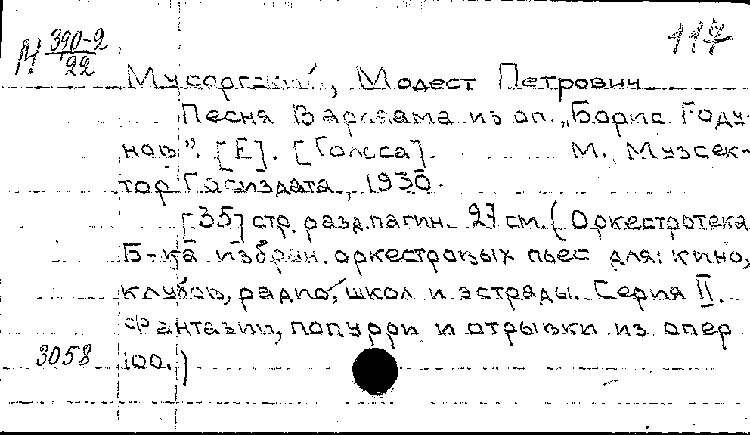 М 390-2/22
117
Мусоргский, Модест Петрович
Песня Варлаама из оп. „Борис Году-
нов”. [Е]. [Голоса]. М., Музсек-
тор Госиздата, 1930.
[35] стр. разд. пагин. 27 см. (Оркестротека
Б-ка избран. оркестровых пьес для: кино,
клубов, радио, школ и эстрады. Серия II.
Фантазии, попурри и отрывки из опер
3058 100.)